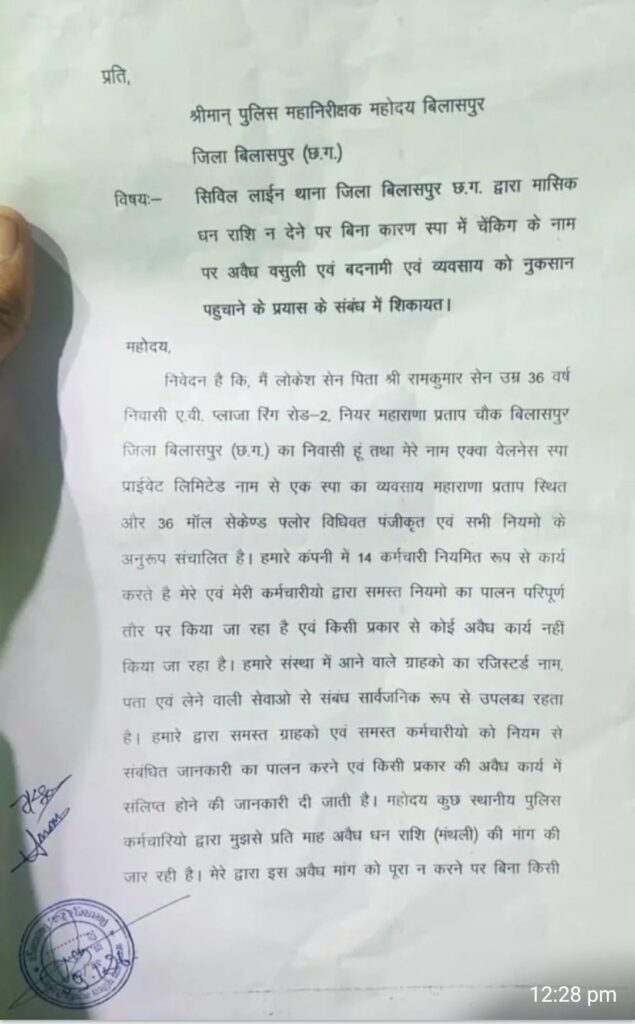 प्रति,
श्रीमान् पुलिस महानिरीक्षक महोदय बिलासपुर
जिला बिलासपुर (छ.ग.)
विषयः– सिविल लाईन थाना जिला बिलासपुर छ.ग. द्वारा मासिक
धन राशि न देने पर बिना कारण स्पा में चेंकिग के नाम
पर अवैध वसुली एवं बदनामी एवं व्यवसाय को नुकसान
पहुचाने के प्रयास के संबंध में शिकायत।
महोदय,
निवेदन है कि, मैं लोकेश सेन पिता श्री रामकुमार सेन उम्र 36 वर्ष
निवासी ए.वी. प्लाजा रिंग रोड–2, नियर महाराणा प्रताप चौक बिलासपुर
जिला बिलासपुर (छ.ग.) का निवासी हूं तथा मेरे नाम एक्वा वेलनेस स्पा
प्राईवेट लिमिटेड नाम से एक स्पा का व्यवसाय महाराणा प्रताप स्थित
और 36 मॉल सेकेण्ड फ्लोर विधिवत पंजीकृत एवं सभी नियमो के
अनुरूप संचालित है। हमारे कंपनी में 14 कर्मचारी नियमित रूप से कार्य
करते है मेरे एवं मेरी कर्मचारीयो द्वारा समस्त नियमो का पालन परिपूर्ण
तौर पर किया जा रहा है एवं किसी प्रकार से कोई अवैध कार्य नहीं
किया जा रहा है। हमारे संस्था में आने वाले ग्राहको का रजिस्टर्ड नाम,
पता एवं लेने वाली सेवाओ से संबंध सार्वजनिक रूप से उपलब्ध रहता
है। हमारे द्वारा समस्त ग्राहको एवं समस्त कर्मचारीयो को नियम से
संबंधित जानकारी का पालन करने एवं किसी प्रकार की अवैध कार्य में
संलिप्त होने की जानकारी दी जाती है। महोदय कुछ स्थानीय पुलिस
कर्मचारियो द्वारा मुझसे प्रति माह अवैध धन राशि (मंथली) की मांग की
जार रही है। मेरे द्वारा इस अवैध मांग को पूरा न करने पर बिना किसी
12:28 pm